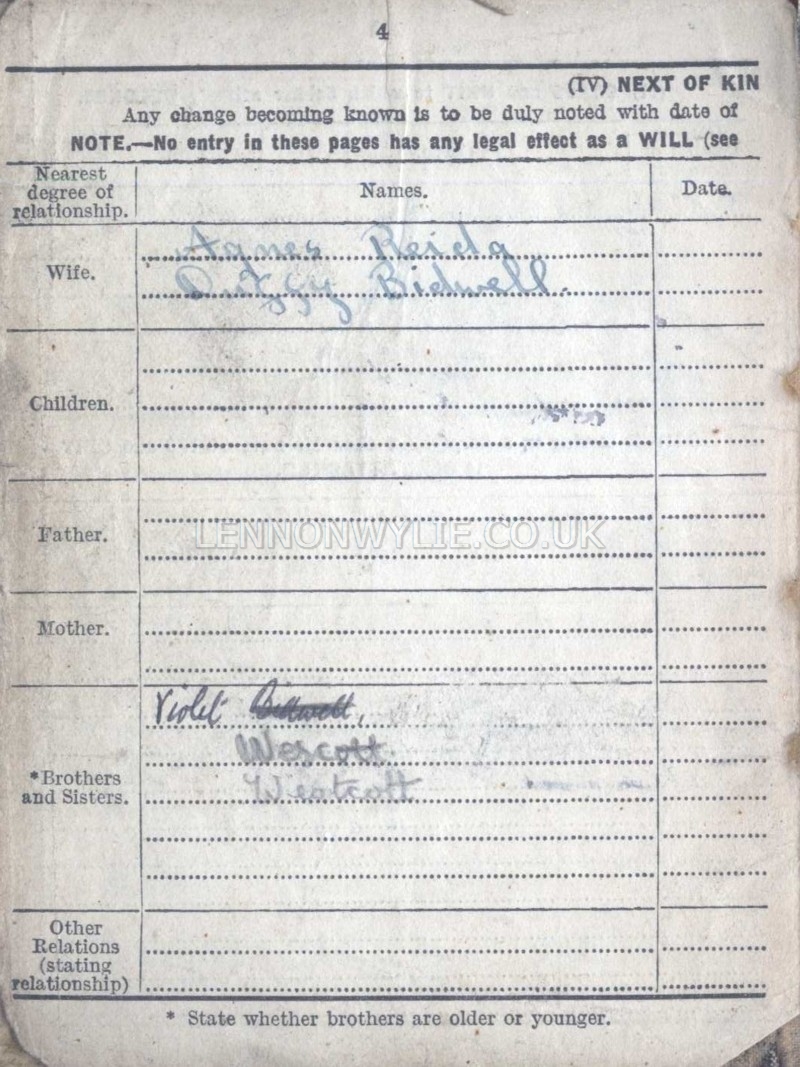 4
(IV) NEXT OF KIN
Any change becoming known is to be duly noted with date of
NOTE.—No entry in these pages has any legal effect as a WILL (see
Nearest
degree of
relationship.
Names.
Date.
Wife.
Agnes Reida
Bidwell.
Children.
Father.
LENNONWYLIE.CO.UK
Mother.
*Brothers
and Sisters.
Violet Bidwell,
Wescott
Westcott
Other
Relations
(stating
relationship)
* State whether brothers are older or younger.